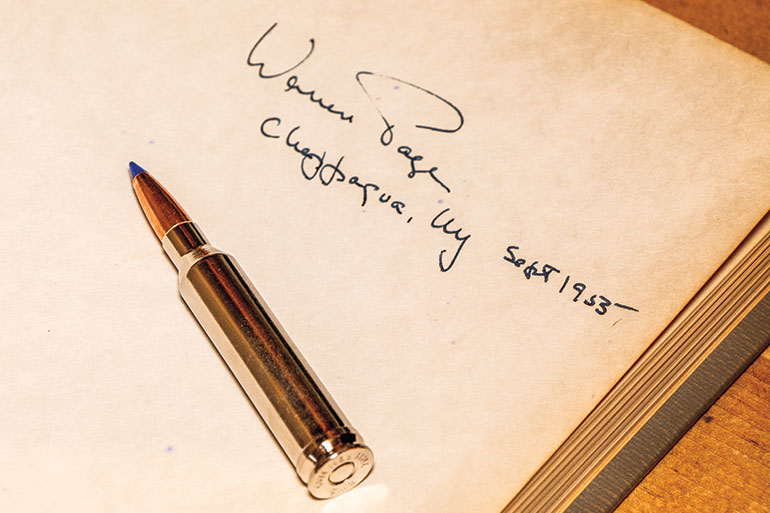 Warren Page
Chappaqua, NY
Sept 1955